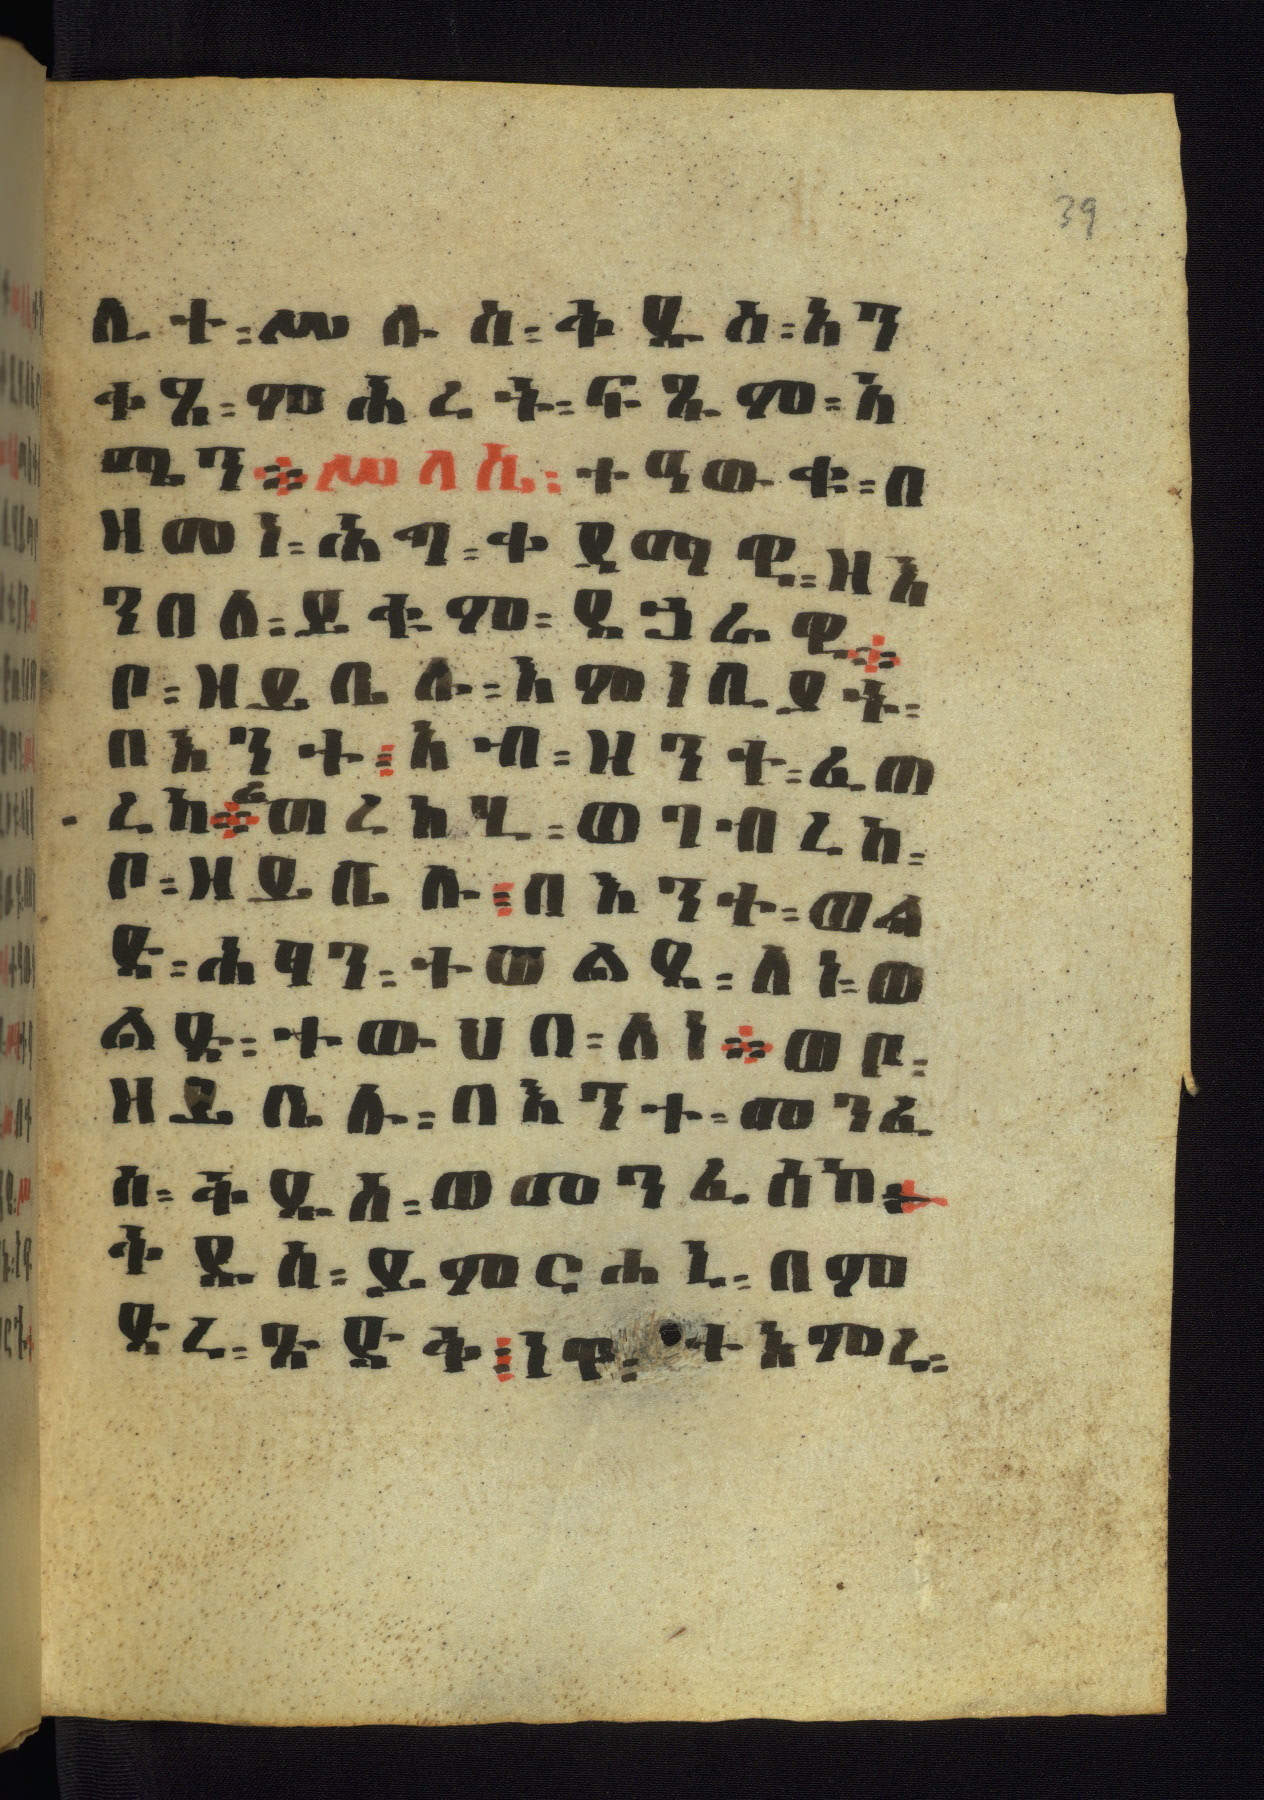 39
ሴተ፡ሥሉስ፡ቅዱስ፡እን
ተጼ፡ምሕረት፡ፍጹም፡አ
ሜን፨ሥላሴ፡ተዓውቁ፡በ
ዘመነ፡ሕግ፡ቀዳማዊ፡ዘእ
ንበለ፡ደቂም፡ደኃራዊ፨
ቦ፡ዘይቤሉ፡አምነቤየት፡
በእንተ፤አብ፡ዝንተ፡ፈጠ
ረከ፨ወረከሂ፡ወገብረከ፡
ቦ፡ዘይቤሉ፤በእንተ፡ወል
ድ፡ሕፃን፡ተወልደ፡ለነ፡ወ
ልዱ፡ተውህበ፡ለነ፨ወቦ፡
ዘይቤሉ፡በእንተ፡መንፈ
ስ፡ቅዱስ፡ወመንፈስከ፨
ቅዱስ፡ይምርሐኒ፡በም
ድረ፡ጽድቅ፤ነዋ፡ተአምረ፡